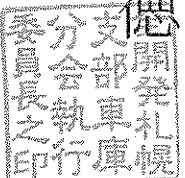 開発札幌
支部車庫
分会執行
委員長之印